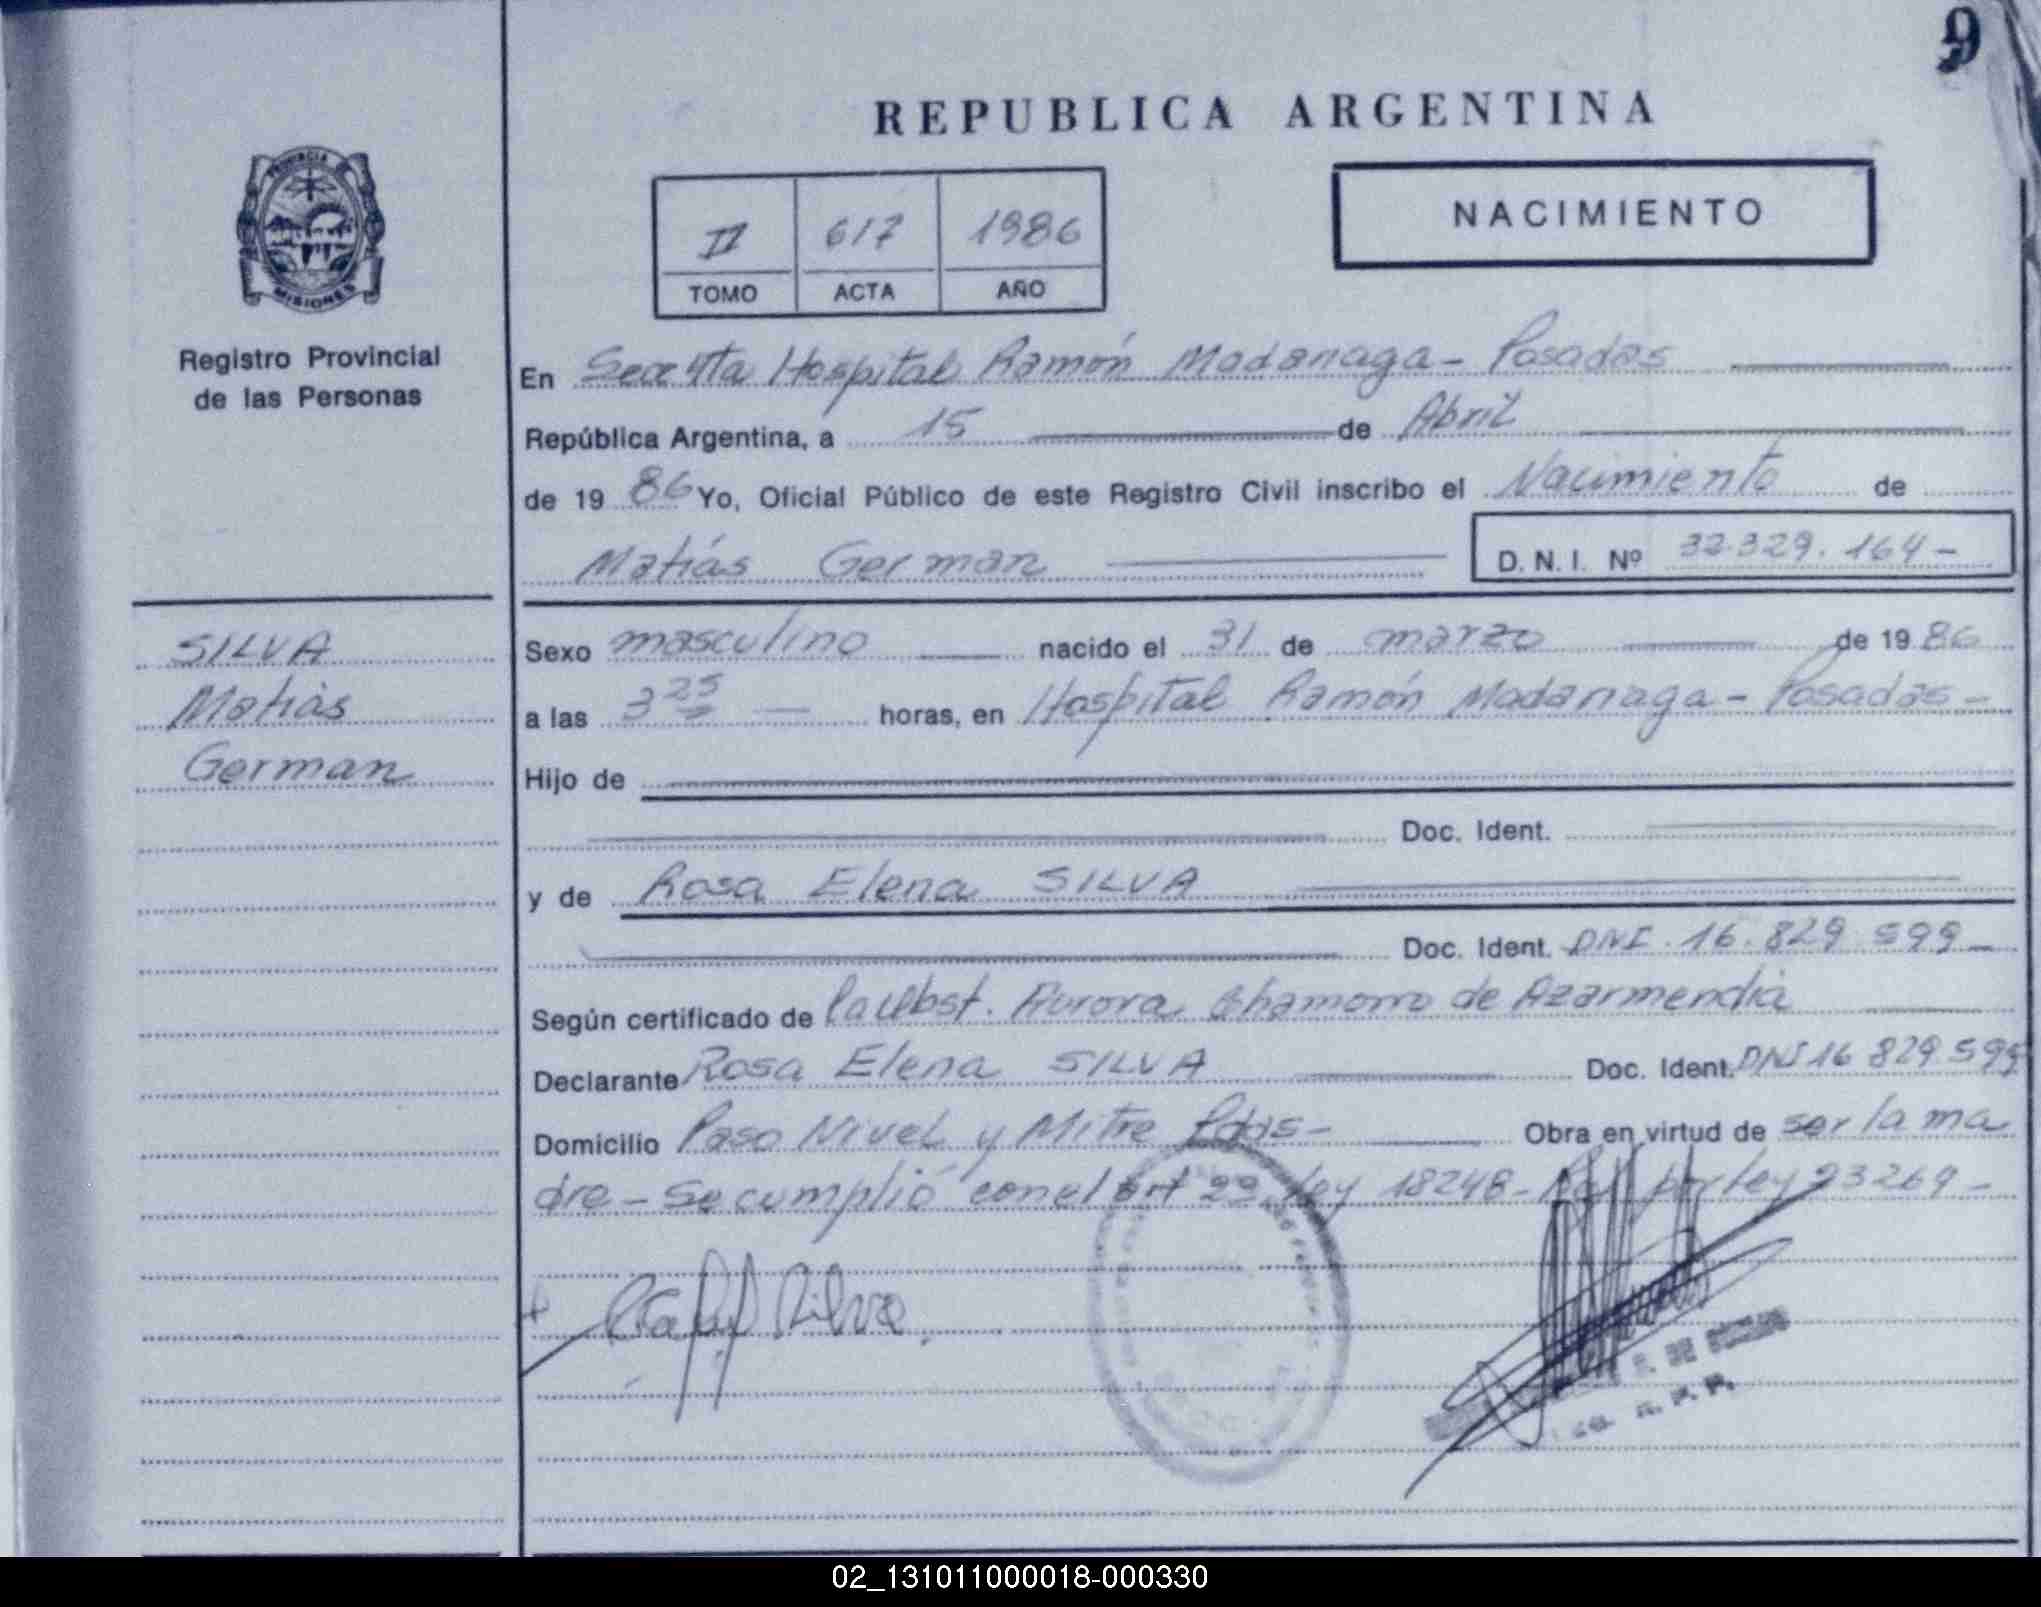 9
REPUBLICA ARGENTINA
PROVINCIA DE
MISIONES
Registro Provincial
de las Personas
II 617 1986
TOMO ACTA AÑO
NACIMIENTO
En Secc 4ta Hospital Ramón Madariaga - Posadas
República Argentina, a 15 de Abril
de 19 86 Yo, Oficial Público de este Registro Civil inscribo el Nacimiento de
Matiás German D. N. I. Nº 32.329.164 -
SILVA
Matiás
German
Sexo masculino nacido el 31 de marzo de 19 86
a las 3 25 horas, en Hospital Ramón Madariaga - Posadas -
Hijo de
Doc. Ident.
y de Rosa Elena SILVA
Doc. Ident. DNI. 16.829.599 -
Según certificado de la Obst. Aurora Chamorro de Azarmendia
Declarante Rosa Elena SILVA Doc. Ident. DNI 16 829.599
Domicilio Paso Nivel y Mitre Pdas - Obra en virtud de ser la ma
dre - Se cumplió con el art 22 Ley 18248 - por Ley 23269 -
Silva
02_131011000018-000330